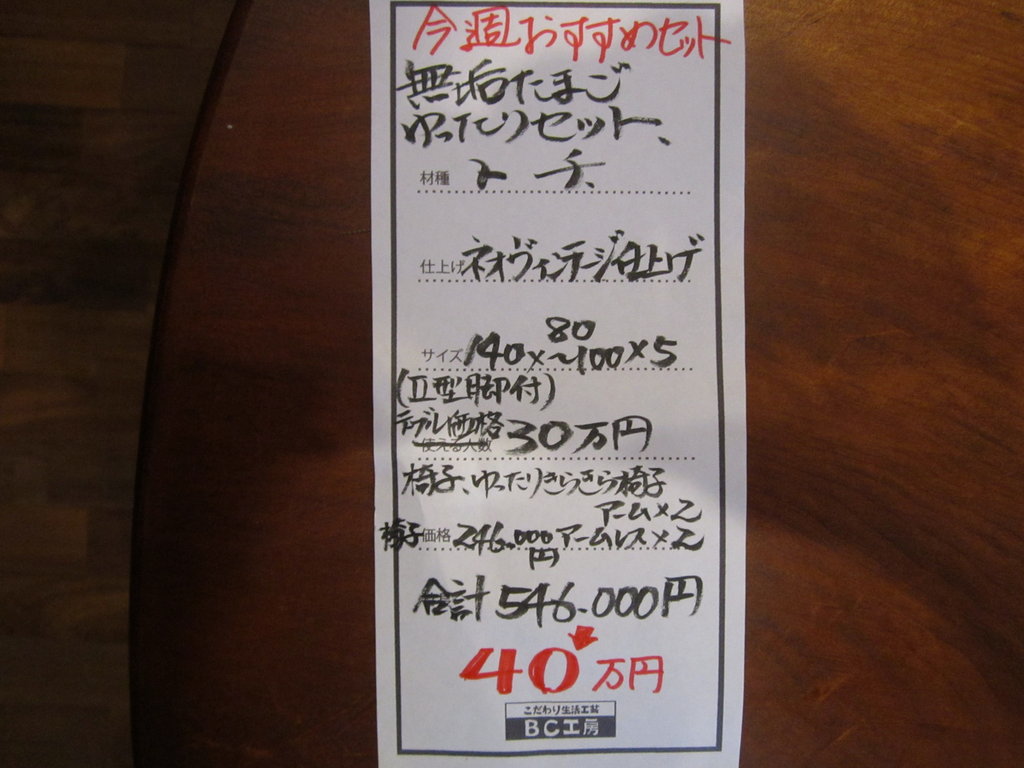 今週おすすめセット
無垢たまご
ゆったりセット、
材種 トチ、
仕上げ ネオヴィンテージ仕上げ
80
サイズ 140×~100×5
(Ⅱ型脚付)
テーブル価格 30万円
使える人数
椅子、ゆったりきらきら椅子
アーム×2
椅子価格 246.000円 アームレス×2
合計 546.000円
40万円
こだわり生活工芸
BC工房